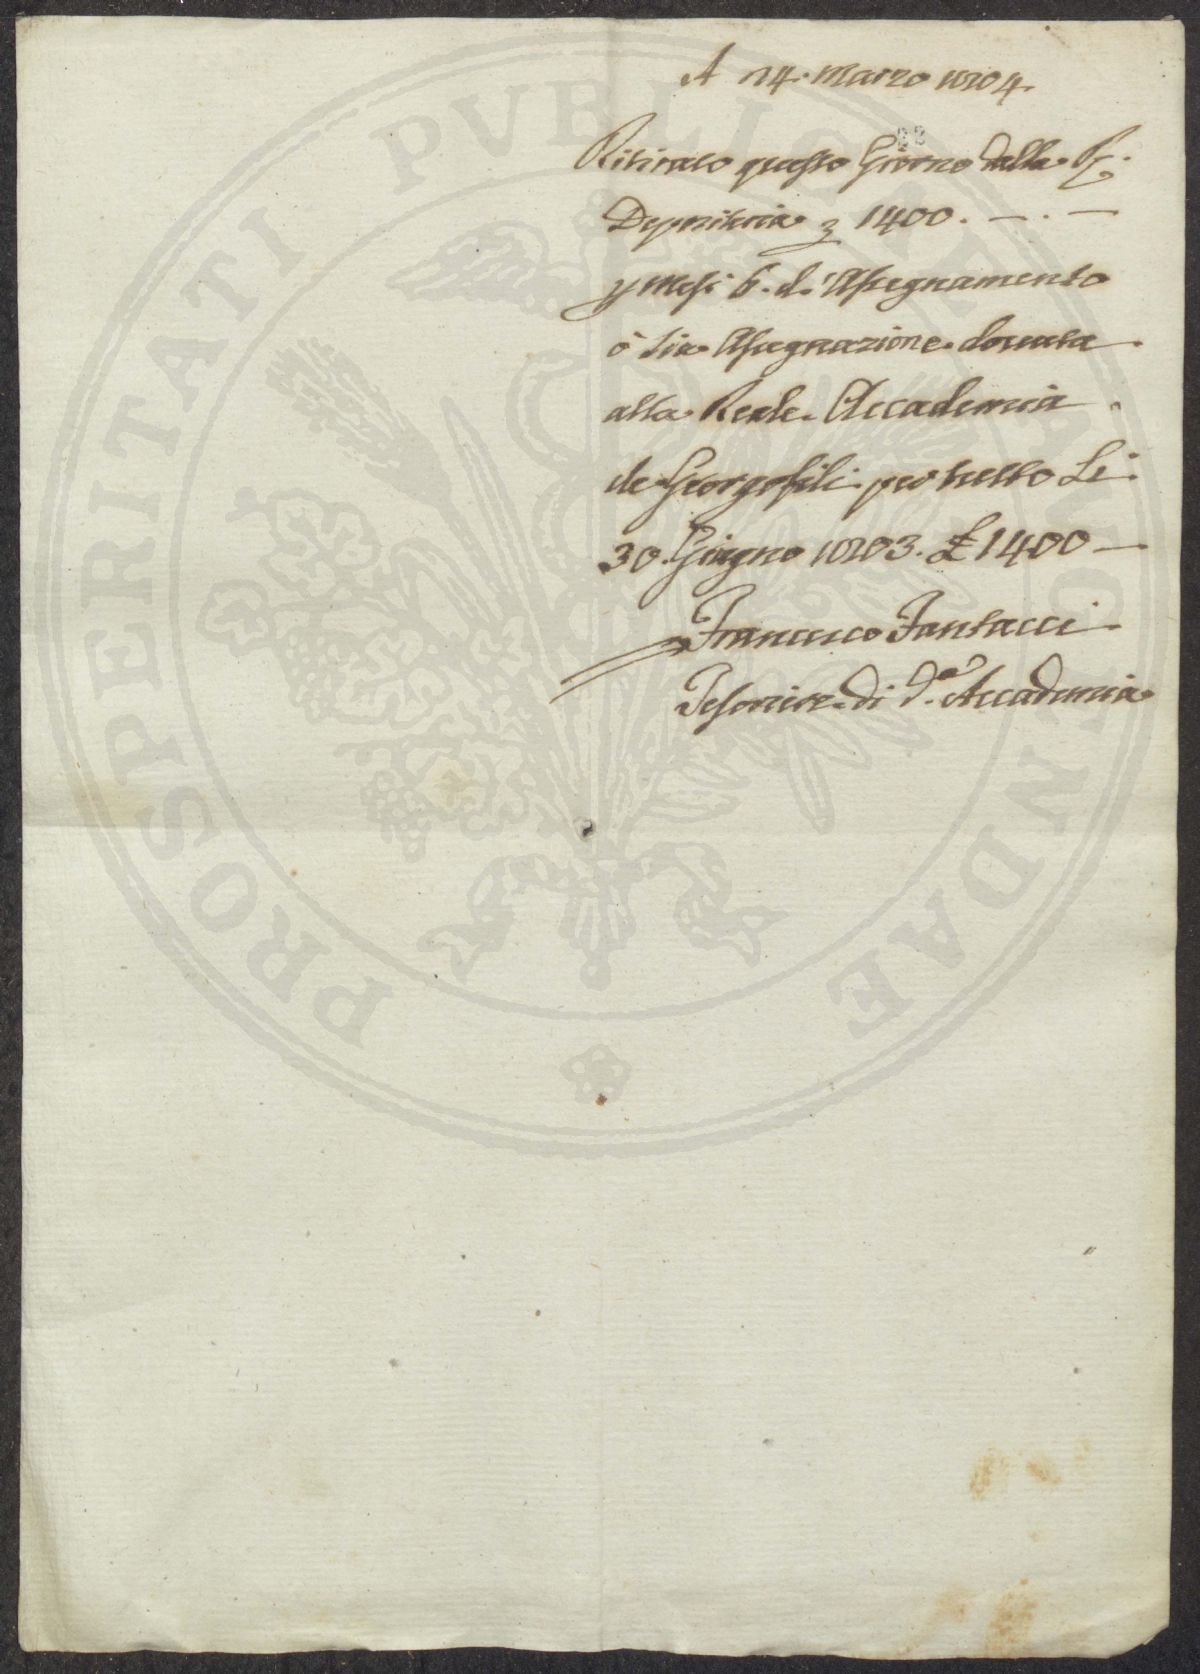 A 14. Marzo 1804.
22
Ritirato questo Giorno dalla R.
Depositeria 1400. — . —
p Mesi 6. d'Assegnamento
ò sia Assegnazione donata
alla Reale Accademia
de Georgofili per tutto Li
30. Giugno 1803. £ 1400 —
Francesco Fantacci
Tesoriere di d.ª Accademia
PROSPERITATI PVBLICAE AVGENDAE